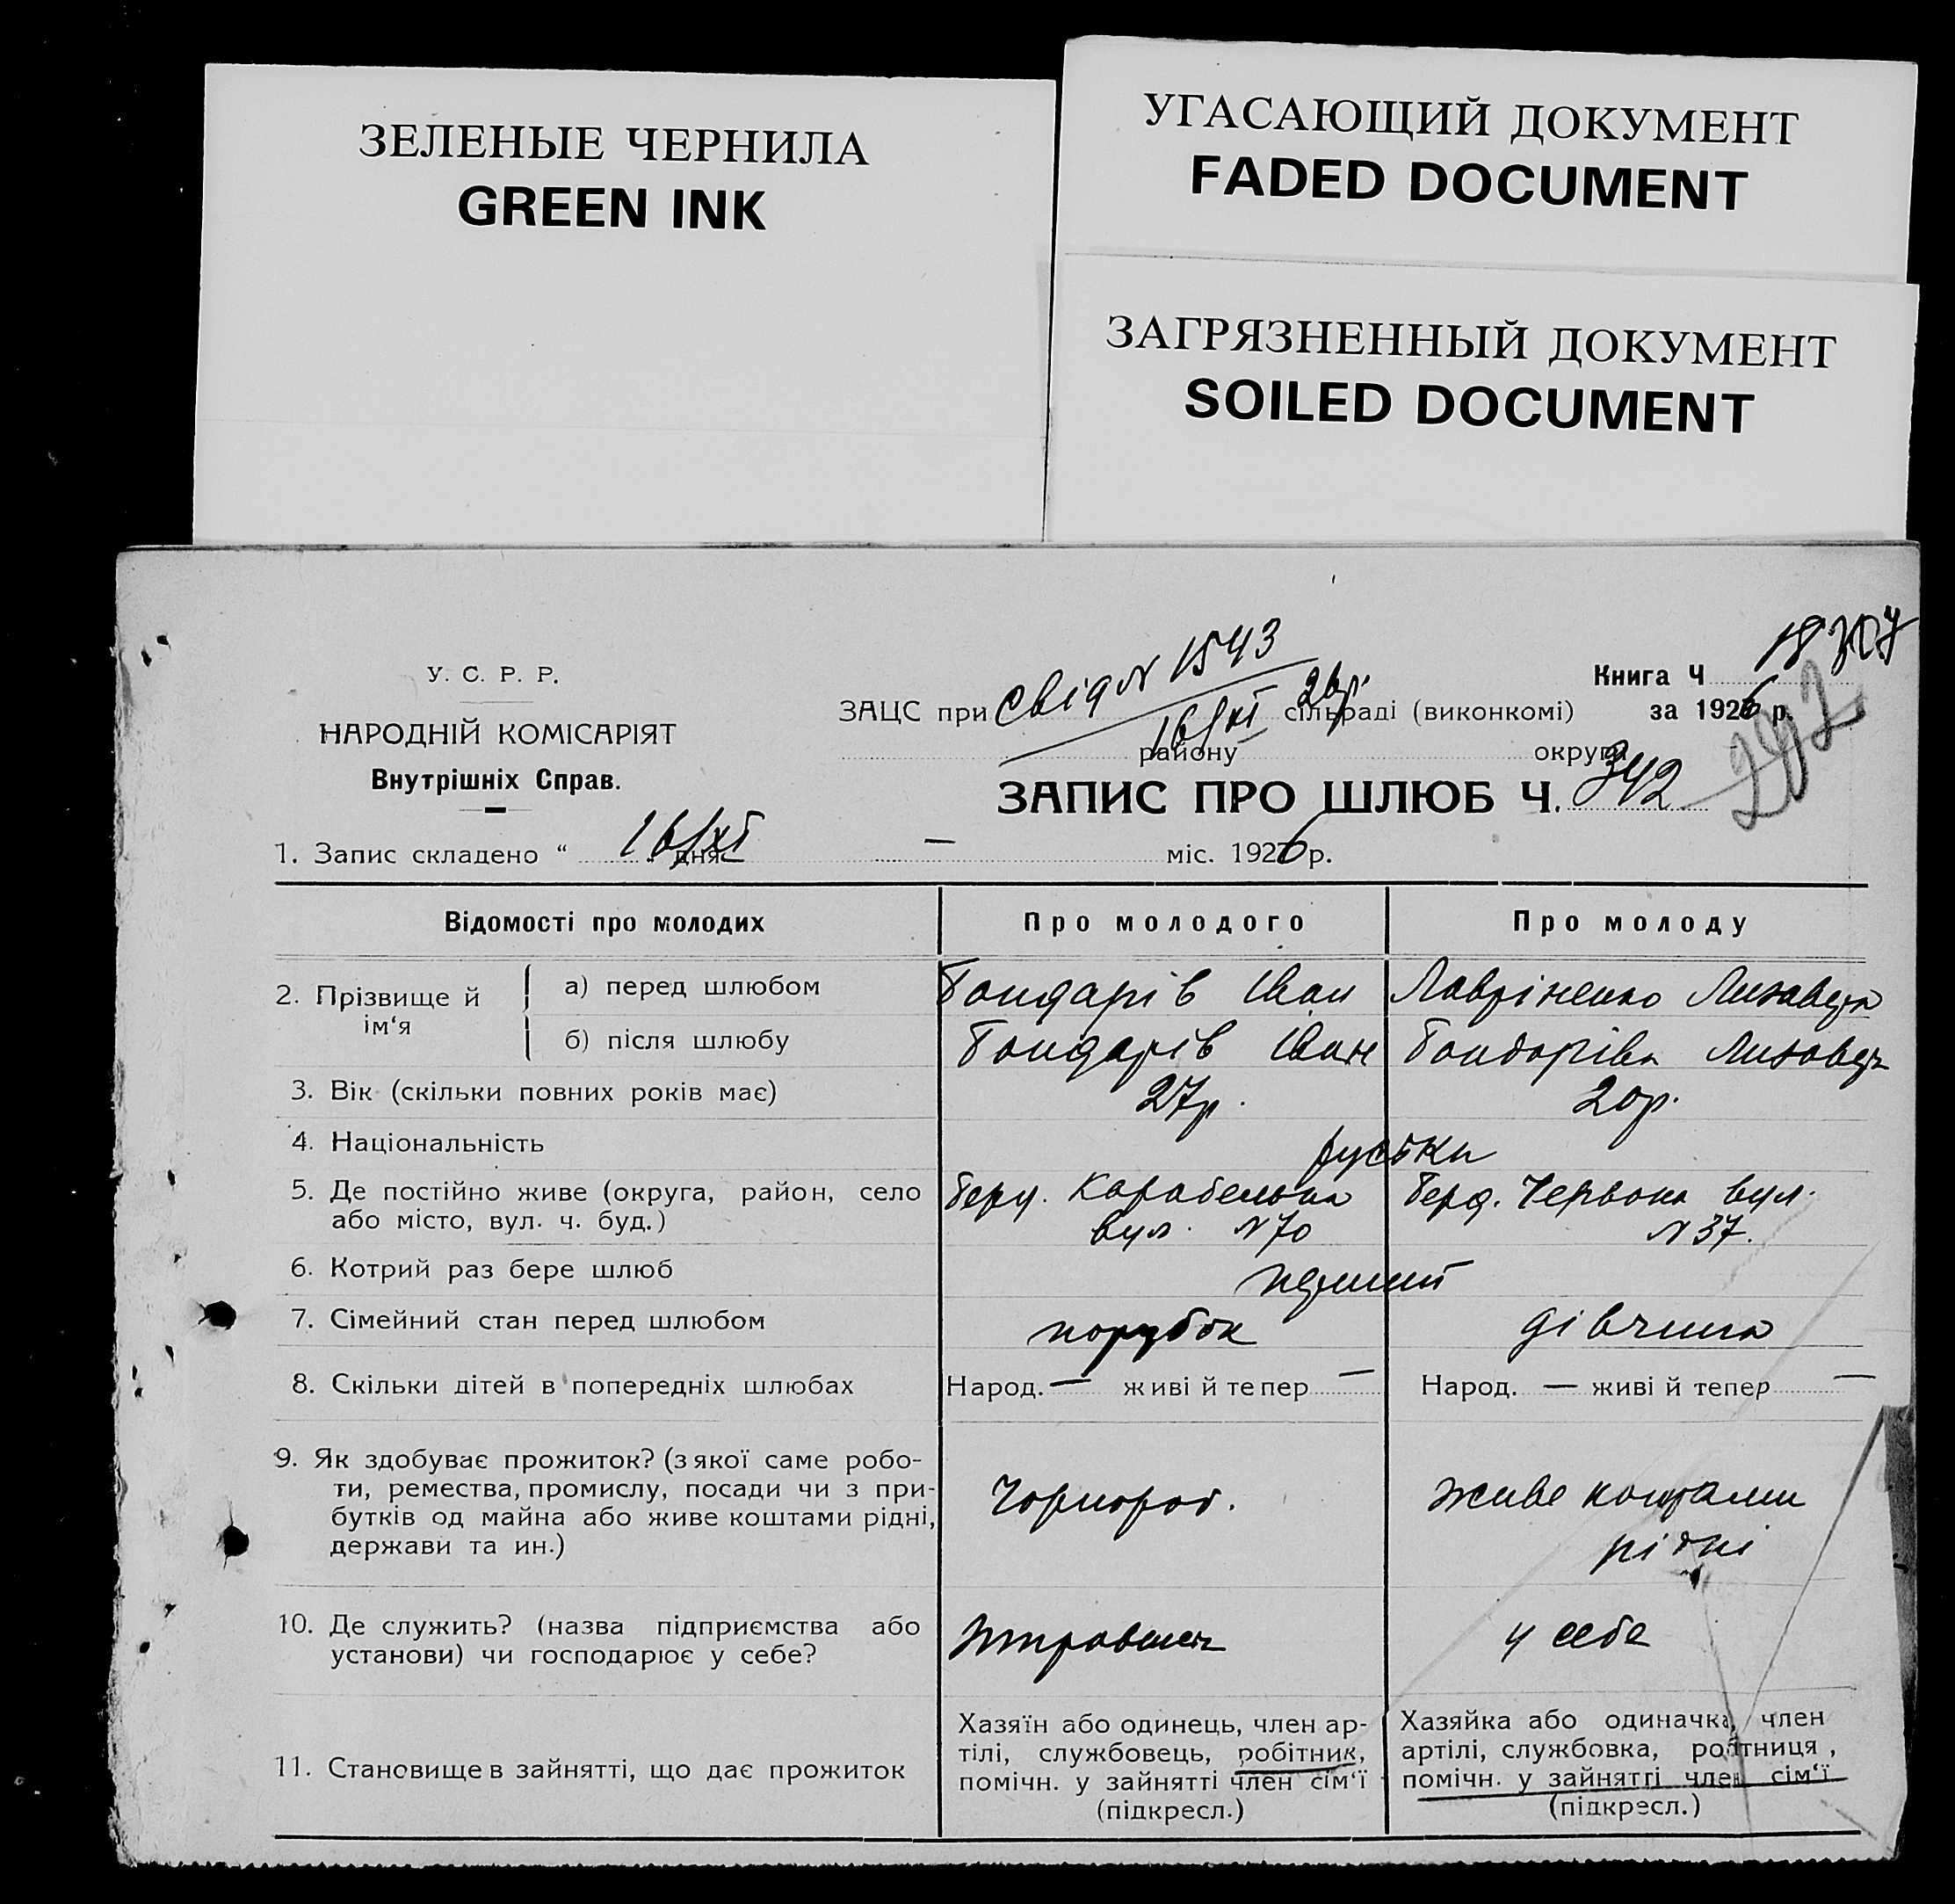 ЗЕЛЕНЫЕ ЧЕРНИЛА
GREEN INK
УГАСАЮЩИЙ ДОКУМЕНТ
FADED DOCUMENT
ЗАГРЯЗНЕННЫЙ ДОКУМЕНТ
SOILED DOCUMENT
У. С. Р. Р.
НАРОДНІЙ КОМІСАРІЯТ
Внутрішніх Справ.
Книга Ч 18
за 1926 р.
Свід N 1543
16/XI 26р.
ЗАЦС при сільраді (виконкомі)
району округи
ЗАПИС ПРО ШЛЮБ Ч. 342
1. Запис складено “ 16/XI дня — міс. 1926 р.
Відомості про молодих Про молодого Про молоду
2. Прізвище й ім‘я
а) перед шлюбом Бондарів Іван Лавріненко Лизавета
б) після шлюбу Бондарів Іван Бондаріва Лизавета
3. Вік (скільки повних років має) 27р. 20р.
4. Національність руські
5. Де постійно живе (округа, район, село Берд. Карабельна Берд. Червона вул.
або місто, вул. ч. буд.) вул. N 70 N 37.
6. Котрий раз бере шлюб перший
7. Сімейний стан перед шлюбом парубок дівчина
8. Скільки дітей в попередніх шлюбах Народ. — живі й тепер — Народ. — живі й тепер —
9. Як здобуває прожиток? (з якої саме робо-
ти, ремества, промислу, посади чи з при- Чорнороб. живе коштами
бутків од майна або живе коштами рідні, рідні
держави та ин.)
10. Де служить? (назва підприємства або у себе
установи) чи господарює у себе?
11. Становище в зайнятті, що дає прожиток
Хазяїн або одинець, член ар-
тілі, службовець, робітник,
помічн. у зайнятті член сім‘ї
(підкресл.)
Хазяйка або одиначка, член
артілі, службовка, робітниця,
помічн. у зайнятті член сім‘ї
(підкресл.)